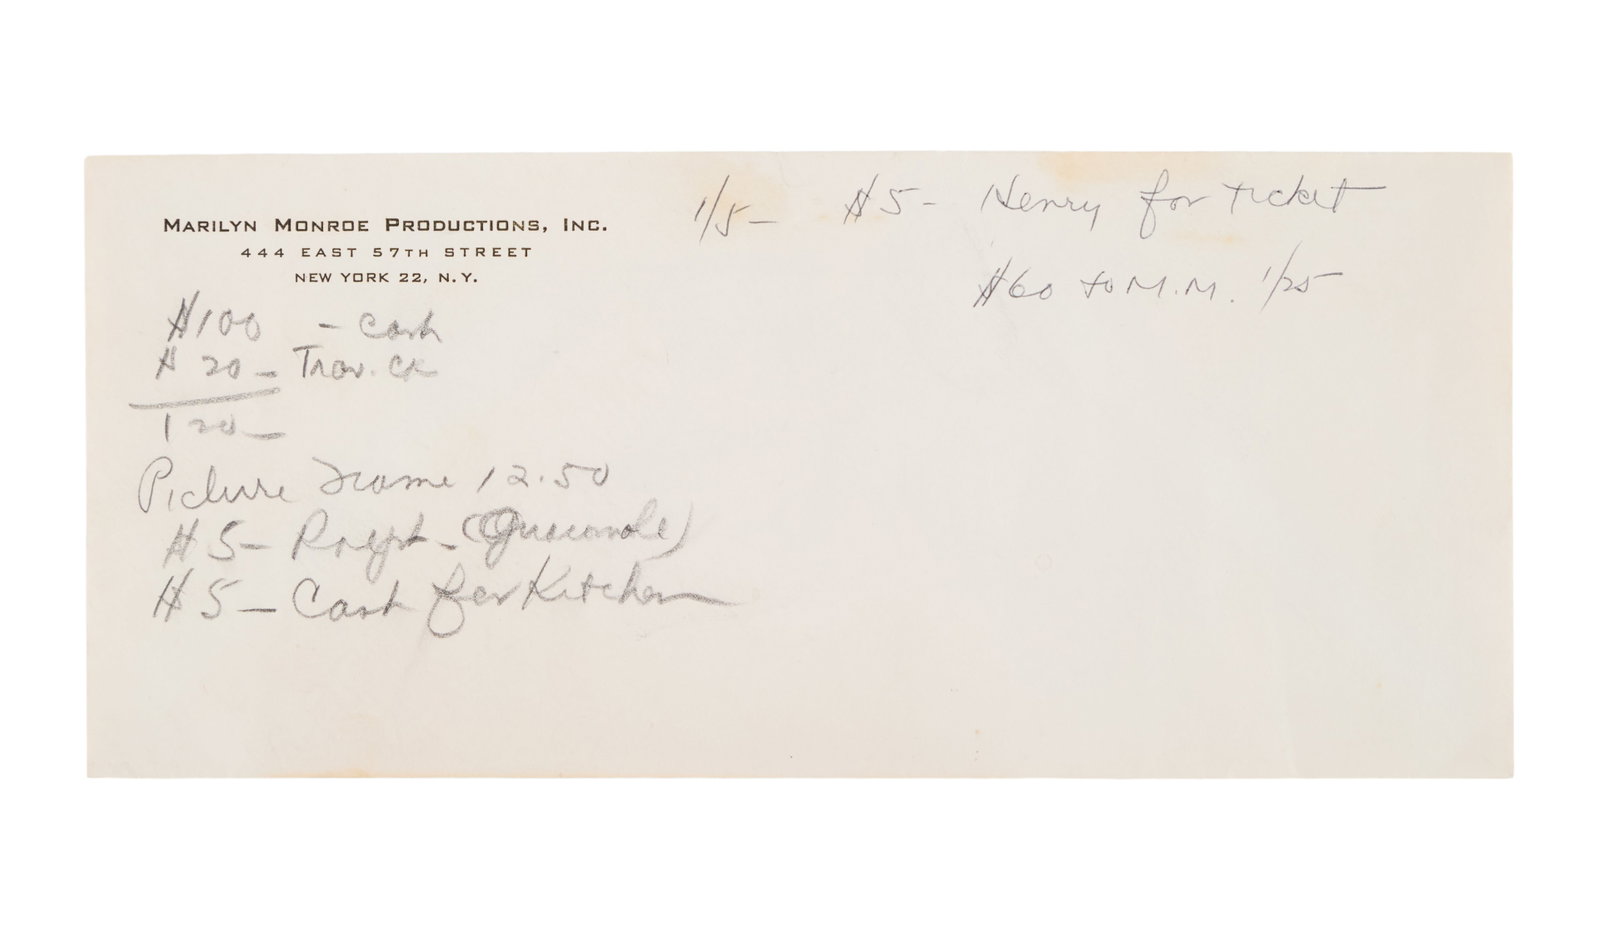 MARILYN MONROE PRODUCTIONS, INC.
444 EAST 57TH STREET
NEW YORK 22, N.Y.
1/5- $5- Henry for ticket
$60 to M.M. 1/25
$100 - cash
$20- Trav. Ck
120-
Picture Frame 12.50
$5- Ralph-
$5- Cash for Kitchen